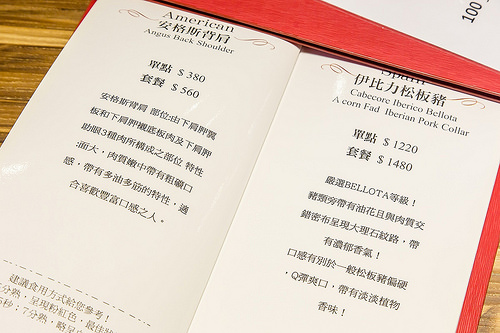 American
安格斯背肩
Angus Back Shoulder
單點 $ 380
套餐 $ 560
安格斯背肩 部位:由下肩胛翼
板和下肩胛襯底板肉及下肩胛
助眼3種肉所構成之部位 特性
:面大,肉質嫩中帶有粗曠口
感,帶有多油多筋的特性,適
合喜歡豐富口感之人。
建議食用方式給您參考!
分熟,呈現粉紅色,最佳
秒;7分熟,略
Spain
伊比力松板豬
Cabecore Iberico Bellota
A corn Fad Iberian Pork Collar
單點 $ 1220
套餐 $ 1480
嚴選BELLOTA等級!
豬頸旁帶有油花且與肉質交
錯密布呈現大理石紋路,帶
有濃郁香氣!
口感有別於一般松板豬偏硬
,Q彈爽口,帶有淡淡植物
香味!
100